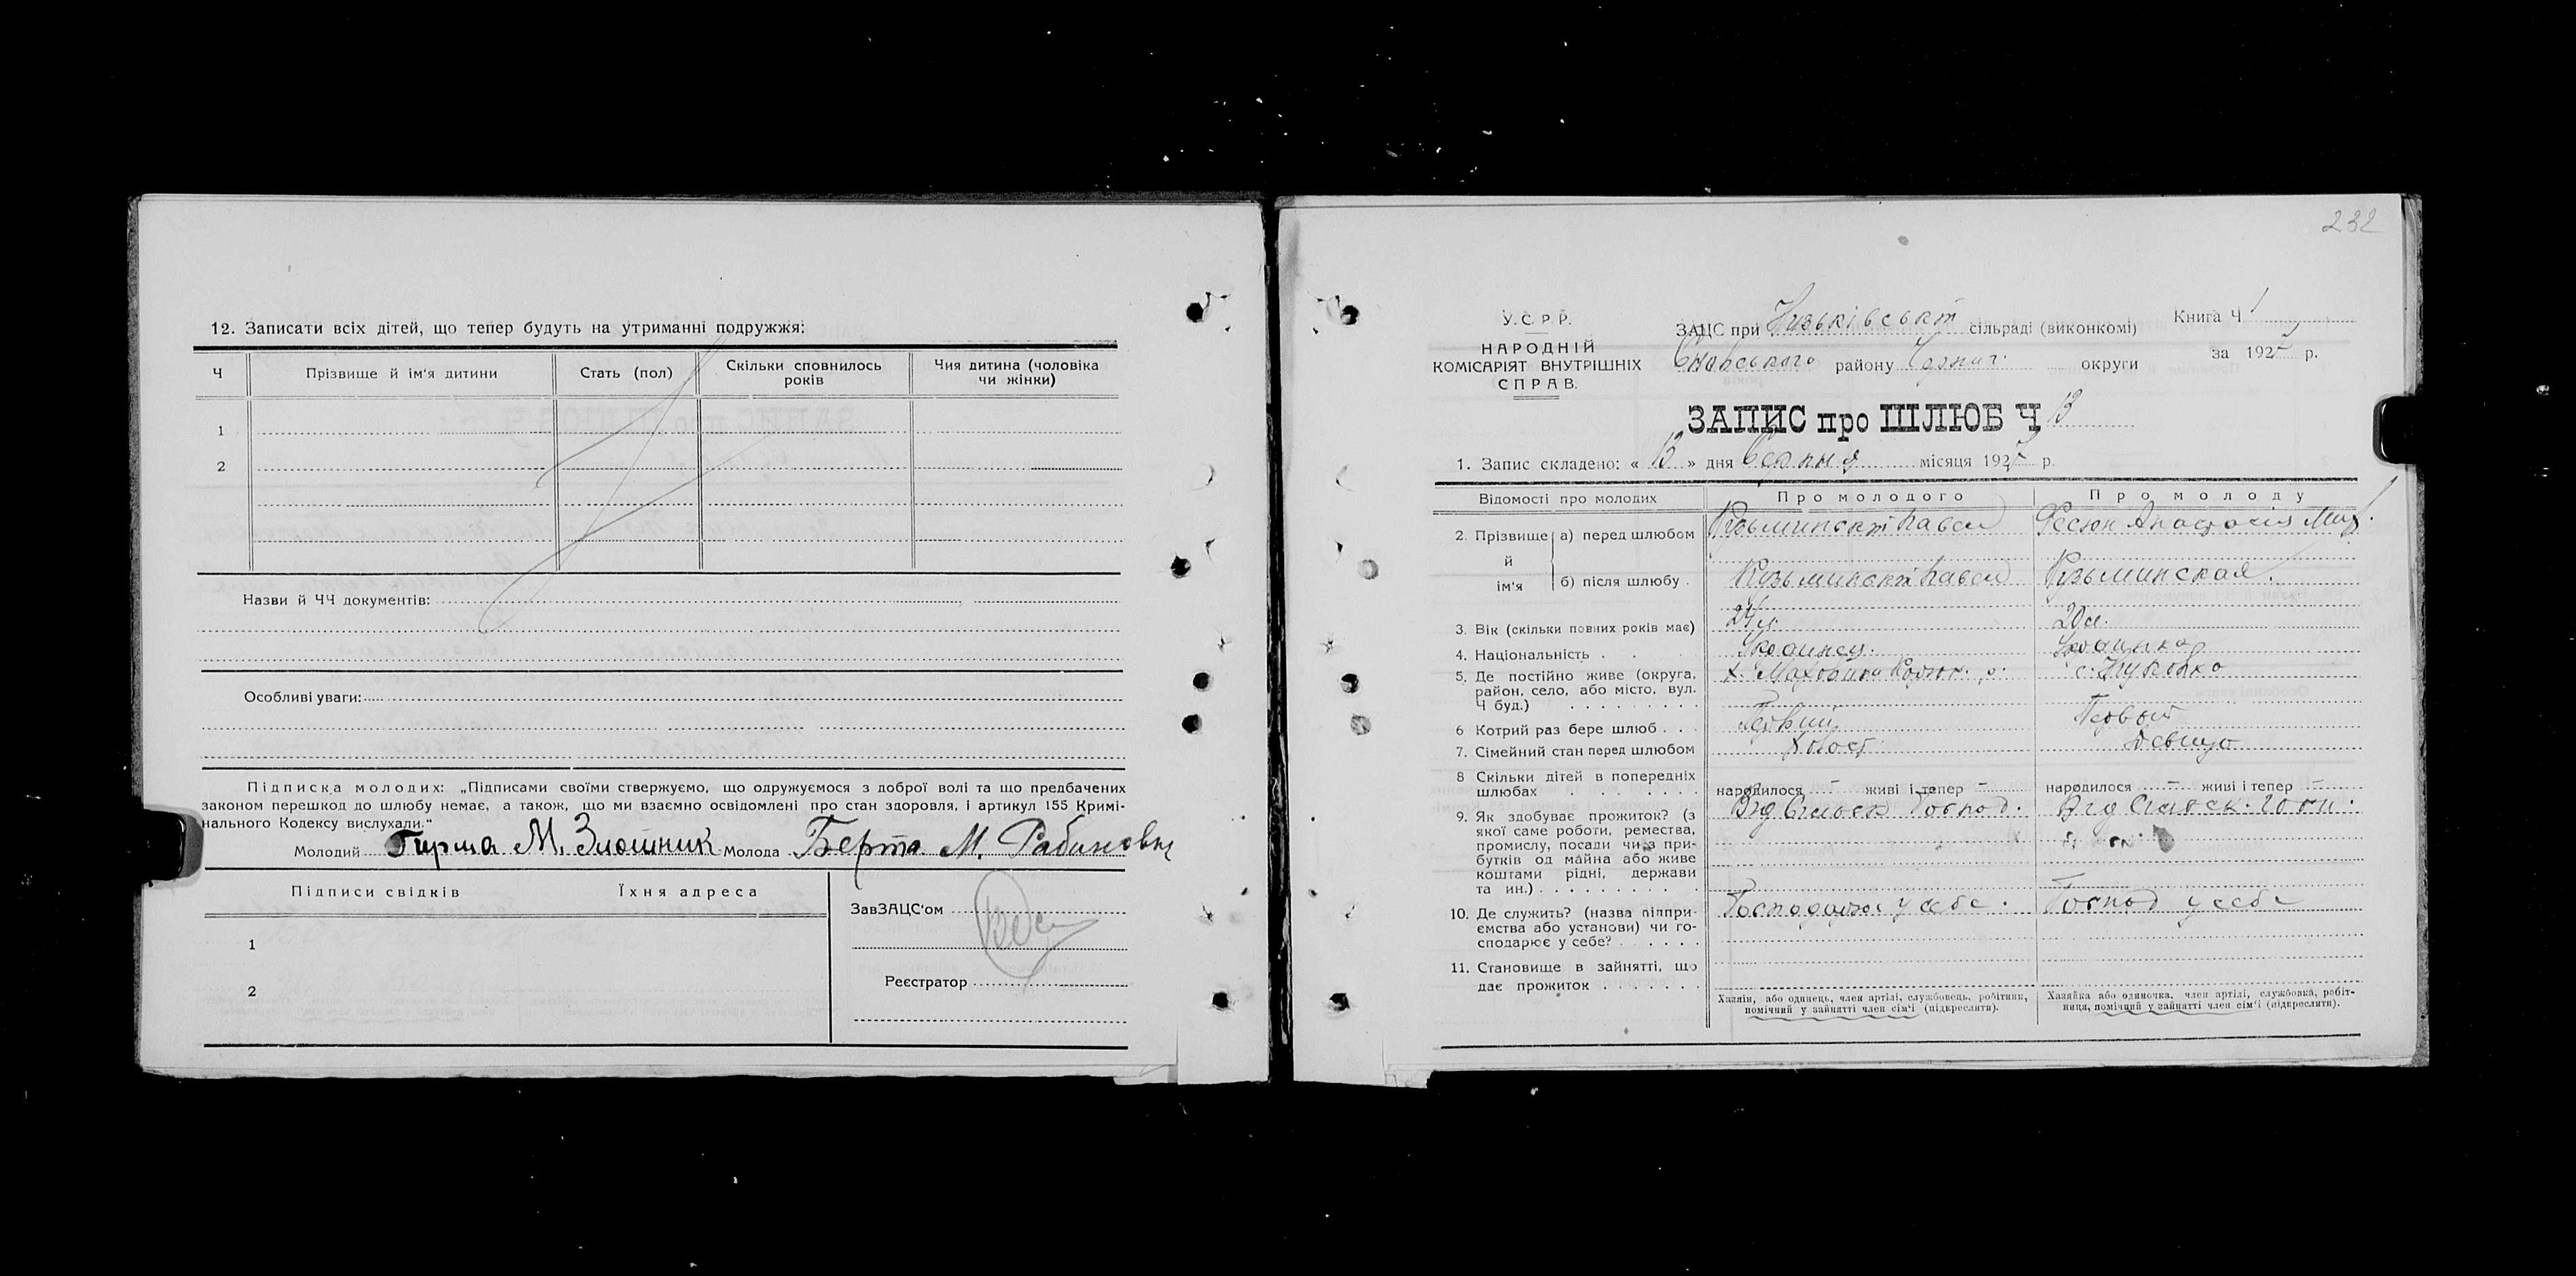 12. Записати всіх дітей, що тепер будуть на утриманні подружжя:
Ч Прізвище й ім'я дитини Стать (пол) Скільки сповнилось років Чия дитина (чоловіка чи жінки)
1
2
Назви й ЧЧ документів:
Особливі уваги:
Підписка молодих: „Підписами своїми ствержуємо, що одружуємося з доброї волі та що предбачених
законом перешкод до шлюбу немає, а також, що ми взаємно освідомлені про стан здоровля, і артикул 155 Кримі-
нального Кодексу вислухали."
Молодий Гирша М. Злотник Молода Берта М. Рабинович
Підписи свідків Їхня адреса
ЗавЗАЦС'ом
1
Реєстратор
2
232
У.С.Р.Р.
НАРОДНІЙ
КОМІСАРІЯТ ВНУТРІШНІХ
СПРАВ.
ЗАЦС при сільраді (виконкомі)
Сновського району Черниг. округи
Книга Ч 1
за 1925 р.
ЗАПИС про ШЛЮБ Ч 13
1. Запис складено: « 13 » дня Серпня місяця 1925 р.
Відомості про молодих Про молодого Про молоду
2. Прізвище й ім'я
а) перед шлюбом Кузьминский Павел Фесюк Анастасія Мих.
б) після шлюбу . Кузьминский Павел Кузьминская.
3. Вік (скільки повних років має) 24 л. 20 л.
4. Національність . Украинец. Украинка
5. Де постійно живе (округа,
район, село, або місто, вул.
Ч буд.) х. с.
6 Котрий раз бере шлюб . . . Первий Первый
7. Сімейний стан перед шлюбом Холост Девица
8 Скільки дітей в попередніх
шлюбах народилося – живі і тепер – народилося – живі і тепер –
9. Як здобуває прожиток? (з
якої саме роботи, ремества,
промислу, посади чи з при-
бутків од майна або живе
коштами рідні, держави
та ин.) Від Сільск Господ. Від Сільск. Госп.
10. Де служить? (назва підпри-
ємства або установи) чи го-
сподарює у себе? у себе. Господ у себе
11. Становище в зайнятті, що
дає прожиток
Хазяїн, або одинець, член артілі, службовець, робітник,
помічний у зайнятті член сім'ї (підкреслити).
Хазяйка або одиночка, член артілі, службовка, робіт-
ниця, помічний у зайнятті член сім'ї (підкреслити).